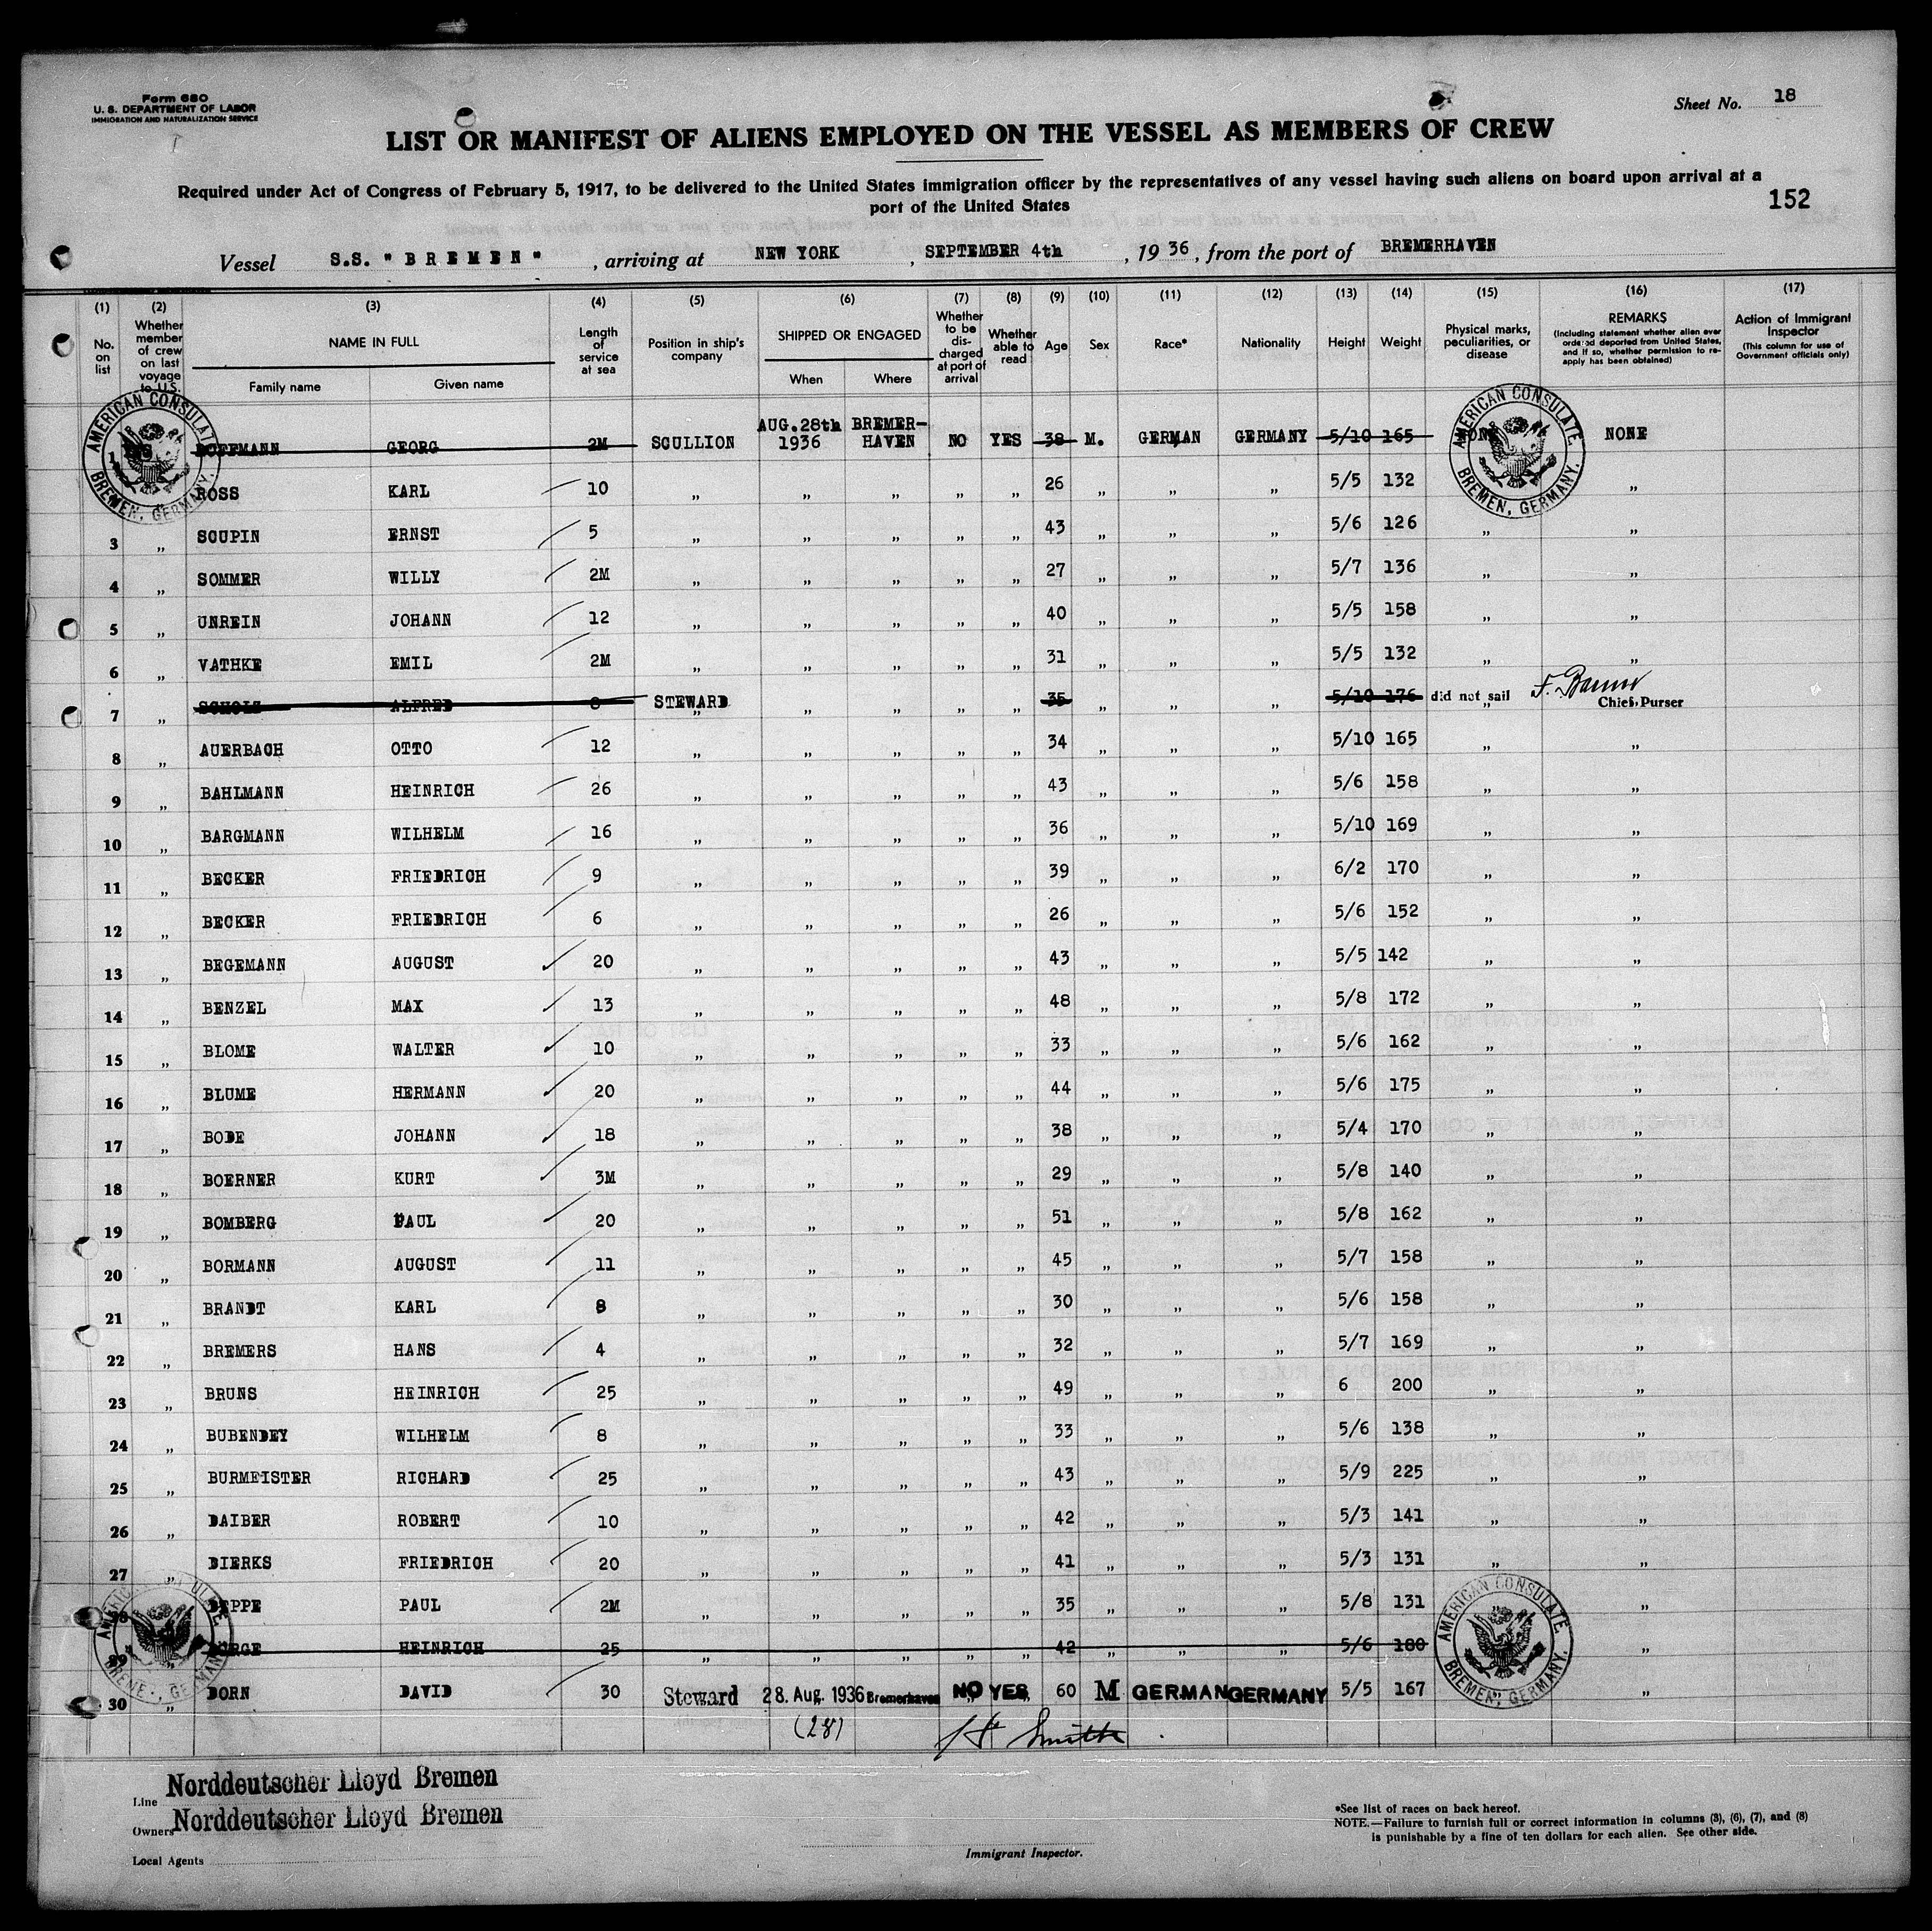 Form 680
U. S. DEPARTMENT OF LABOR
IMMIGRATION AND NATURALIZATION SERVICE
Sheet No. 18
LIST OR MANIFEST OF ALIENS EMPLOYED ON THE VESSEL AS MEMBERS OF CREW
Required under Act of Congress of February 5, 1917, to be delivered to the United States immigration officer by the representatives of any vessel having such aliens on board upon arrival at a
port of the United States
152
Vessel S.S. "BREMEN", arriving at NEW YORK, SEPTEMBER 4th, 1936, from the port of BREMERHAVEN
(1) (2) (3) (4) (5) (6) (7) (8) (9) (10) (11) (12) (13) (14) (15) (16) (17)
No. on list
Whether member of crew on last voyage to U.S.
NAME IN FULL
Family name Given name
Length of service at sea
Position in ship's company
SHIPPED OR ENGAGED
When Where
Whether to be discharged at port of arrival
Whether able to read
Age
Sex
Race*
Nationality
Height
Weight
Physical marks, peculiarities, or disease
REMARKS
(Including statement whether alien ever ordered deported from United States, and if so, whether permission to reapply has been obtained)
Action of Immigrant Inspector
(This column for use of Government officials only)
AMERICAN CONSULATE BREMEN, GERMANY.
AMERICAN CONSULATE. BREMEN, GERMANY.
1 HOFFMANN GEORG 2M SCULLION AUG.28th 1936 BREMER-HAVEN NO YES 38 M. GERMAN GERMANY 5/10 165 NONE NONE
ROSS KARL 10 " " " " " 26 " " " 5/5 132 "
3 " SCUPIN ERNST 5 " " " " " 43 " " " 5/6 126 " "
4 " SOMMER WILLY 2M " " " " " 27 " " " 5/7 136 " "
5 " UNREIN JOHANN 12 " " " " " 40 " " " 5/5 158 " "
6 " VATHKE EMIL 2M " " " " " 31 " " " 5/5 132 " "
7 " SCHOLZ ALFRED 8 STEWARD " " " " 35 " " " 5/10 176 did not sail Chief Purser
8 " AUERBACH OTTO 12 " " " " " 34 " " " 5/10 165 " "
9 " BAHLMANN HEINRICH 26 " " " " " 43 " " " 5/6 158 " "
10 " BARGMANN WILHELM 16 " " " " " 36 " " " 5/10 169 " "
11 " BECKER FRIEDRICH 9 " " " " " 39 " " " 6/2 170 " "
12 " BECKER FRIEDRICH 6 " " " " " 26 " " " 5/6 152 " "
13 " BEGEMANN AUGUST 20 " " " " " 43 " " " 5/5 142 " "
14 " BENZEL MAX 13 " " " " " 48 " " " 5/8 172 " "
15 " BLOME WALTER 10 " " " " " 33 " " " 5/6 162 " "
16 " BLUME HERMANN 20 " " " " " 44 " " " 5/6 175 " "
17 " BODE JOHANN 18 " " " " " 38 " " " 5/4 170 " "
18 " BOERNER KURT 3M " " " " " 29 " " " 5/8 140 " "
19 " BOMBERG PAUL 20 " " " " " 51 " " " 5/8 162 " "
20 " BORMANN AUGUST 11 " " " " " 45 " " " 5/7 158 " "
21 " BRANDT KARL 8 " " " " " 30 " " " 5/6 158 " "
22 " BREMERS HANS 4 " " " " " 32 " " " 5/7 169 " "
23 " BRUNS HEINRICH 25 " " " " " 49 " " " 6 200 " "
24 " BUBENDEY WILHELM 8 " " " " " 33 " " " 5/6 138 " "
25 " BURMEISTER RICHARD 25 " " " " " 43 " " " 5/9 225 " "
26 " DAIBER ROBERT 10 " " " " " 42 " " " 5/3 141 " "
27 " DIERKS FRIEDRICH 20 " " " " " 41 " " " 5/3 131 " "
28 PAUL 2M " " " " " 35 " " " 5/8 131 "
29 HEINRICH 25 " " " " " 42 " " " 5/6 180 "
30 " DORN DAVID 30 Steward 28. Aug. 1936 Bremerhaven NO YES 60 M GERMAN GERMANY 5/5 167 "
AMERICAN CONSULATE BREMEN, GERMANY
AMERICAN CONSULATE. BREMEN, GERMANY.
(28) H Smith
Line Norddeutscher Lloyd Bremen
Owners Norddeutscher Lloyd Bremen
Local Agents
Immigrant Inspector.
*See list of races on back hereof.
NOTE.—Failure to furnish full or correct information in columns (3), (6), (7), and (8)
is punishable by a fine of ten dollars for each alien. See other side.